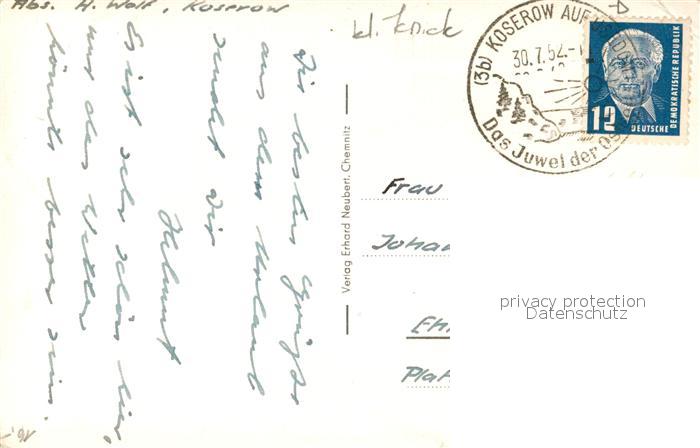 Abs. H. Wolf, Koserow
kl. Knick
Die besten Grüße
aus dem Urlaub
sendet Dir
Helmut
Es ist sehr schön hier,
nur das Wetter
könnte besser sein.
(3b) KOSEROW AUF USEDOM
30.7.52.-
Das Juwel der Os
12
DEUTSCHE
DEMOKRATISCHE REPUBLIK
Verlag Erhard Neubert, Chemnitz
Frau
Johan
Eh
Plat
privacy protection
Datenschutz